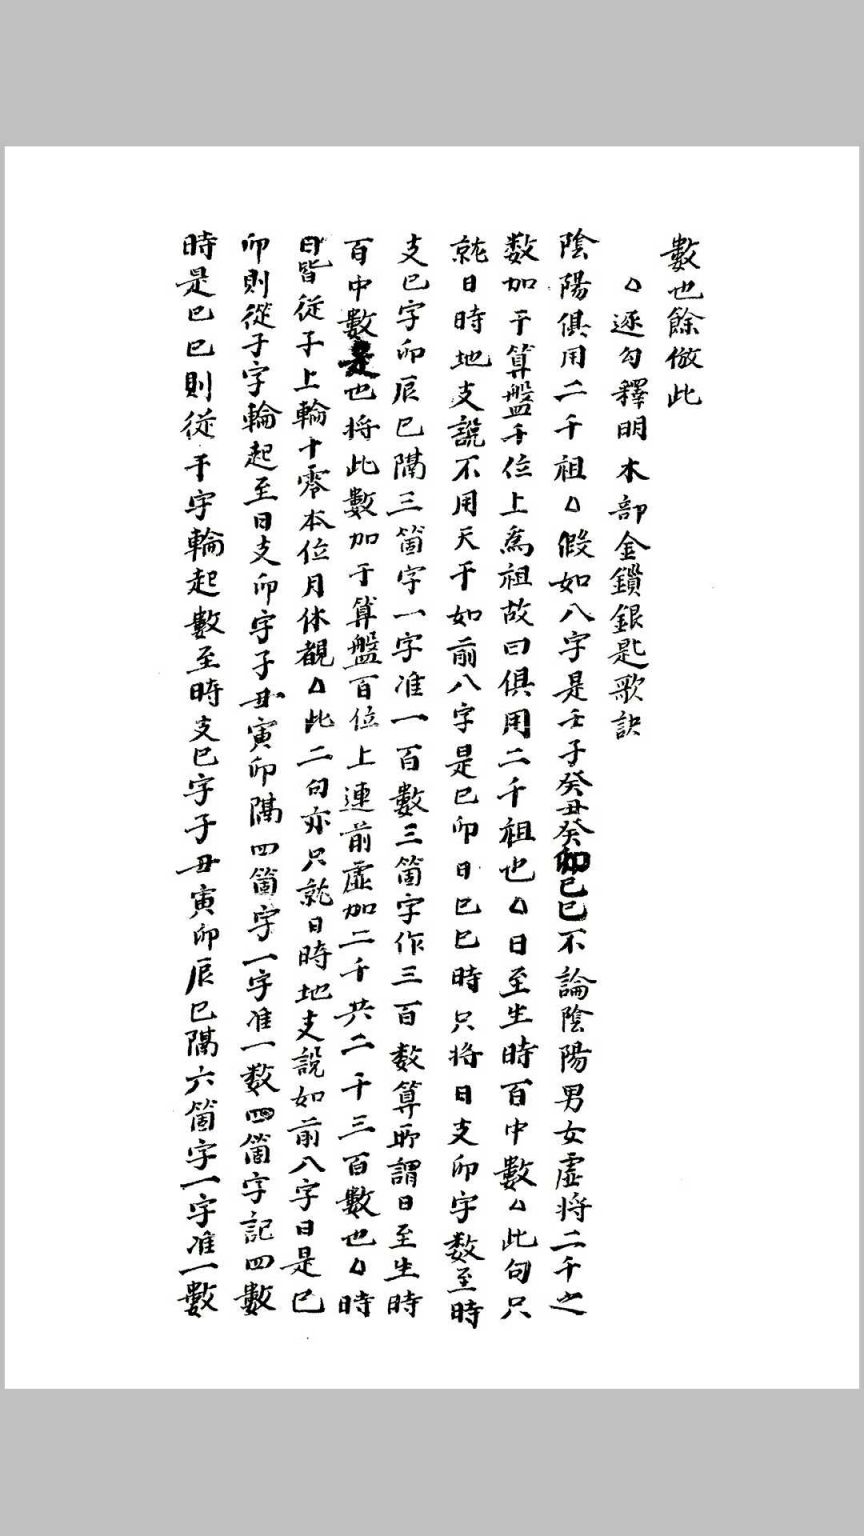 數也餘倣此
△逐勾釋明木部金鎖銀匙歌訣
陰陽俱用二千祖△假如八字是壬子癸丑癸卯己巳不論陰陽男女虛将二千之
数加于算盤千位上為祖故曰俱用二千祖也△日至生時百中數△此句只
就日時地支說不用天干如前八字是巳卯日巳巳時只将日支卯字数至時
支巳字卯辰巳隔三箇字一字准一百數三箇字作三百数算所謂日至生時
百中數是也将此數加于算盤百位上連前虛加二千共二千三百數也△時
日皆從子上輪十零本位月休覩△此二句亦只就日時地支說如前八字日是巳
卯則從子字輪起至日支卯字子丑寅卯隔四箇字一字准一数四箇字記四數
時是巳巳則從子字輪起數至時支巳字子丑寅卯辰巳隔六箇字一字准一數